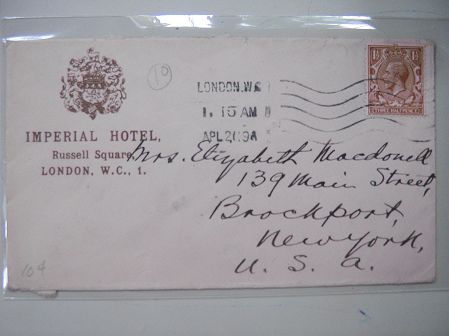 10
LONDON.W.C
1. 15 AM
APL 20
1½ 1½
THREE HALFPENCE
IMPERIAL HOTEL,
Russell Square,
LONDON, W.C., 1.
Mrs. Elizabeth Macdonell
139 Main Street,
Brockport,
New York,
U. S. A.
104